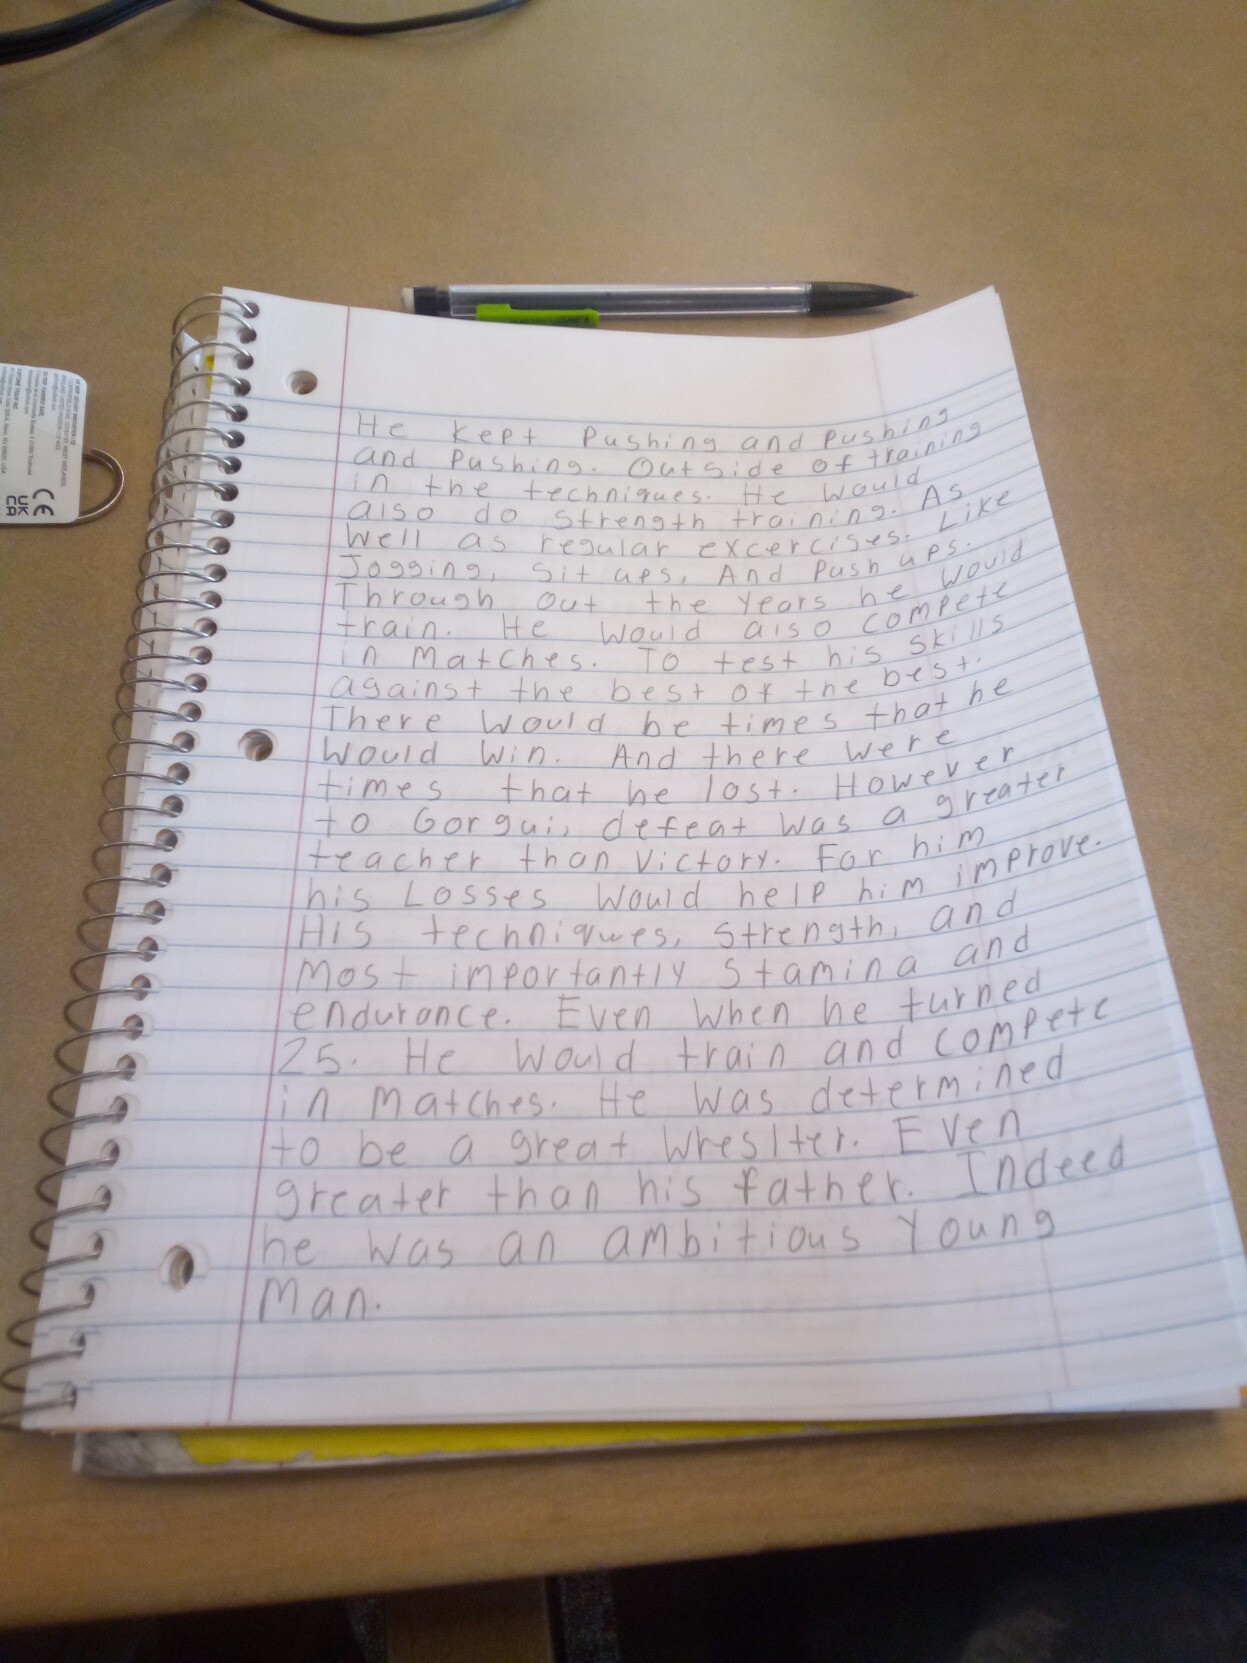 He kept pushing and pushing
and pushing. Outside of training
in the techniques. He would
also do strength training. As
well as regular excercises. Like
Jogging, sit ups, And Push ups.
Through out the years he would
train. He would also compete
in matches. To test his skills
against the best of the best.
There would be times that he
would win. And there were
times that he lost. However
to Gorgui, defeat was a greater
teacher than victory. For him
his Losses would help him improve.
His techniques, strength, and
most importantly stamina and
endurance. Even when he turned
25. He would train and compete
in matches. He was determined
to be a great wreslter. Even
greater than his father. Indeed
he was an ambitious young
man.
CE
UK
CA